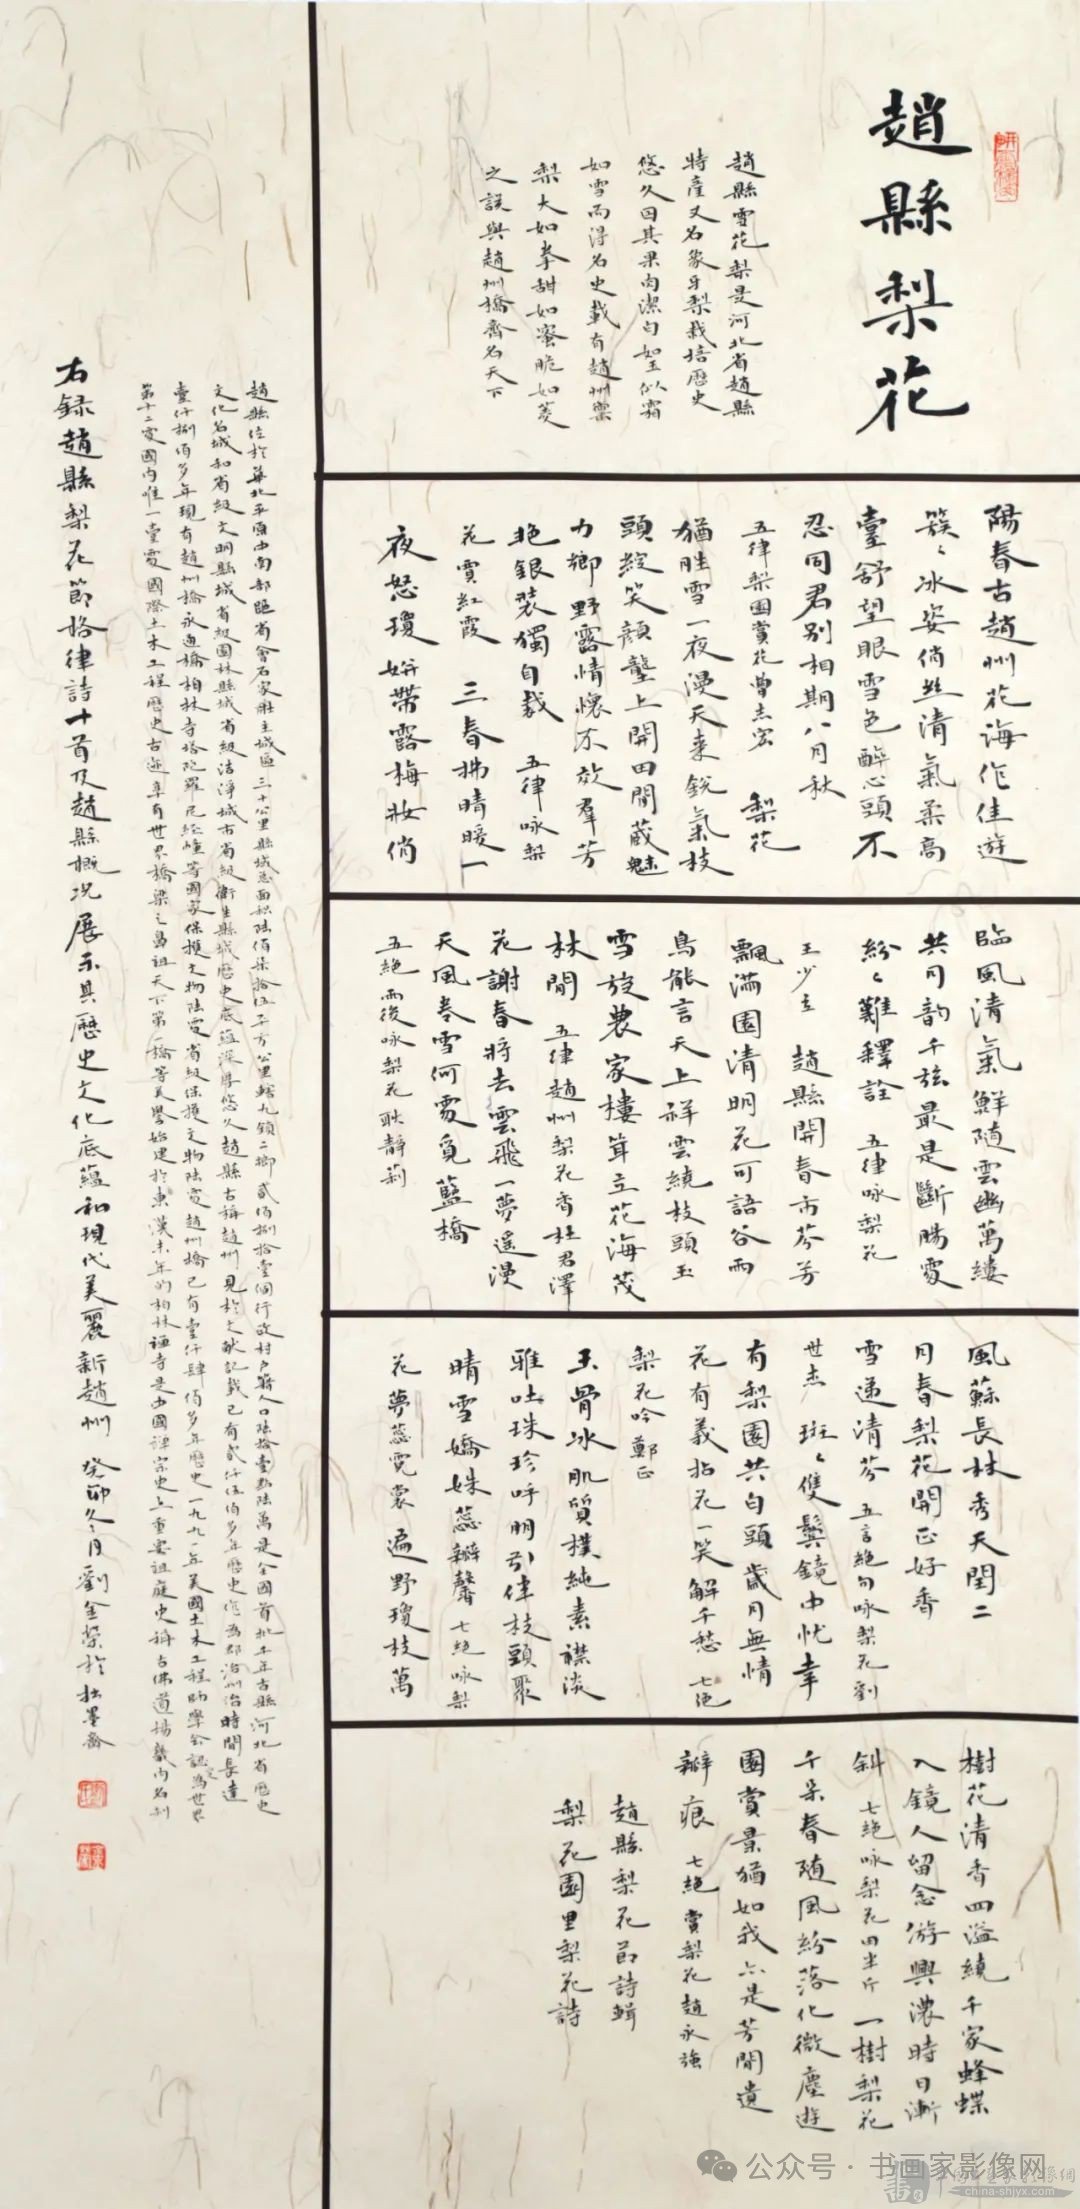 趙縣梨花
趙縣雪花梨是河北省趙縣
特產又名象牙梨栽培歷史
悠久因其果肉潔白如玉似霜
如雪而得名史載有趙州禦
梨大如拳甜如蜜脆如菱
之誤與趙州橋齊名天下
陽春古趙州花海作佳遊
簇々冰姿俏丝清氣柔高
臺舒望眼雪色醉心頭不
忍同君别相期八月秋
五律梨園賞花曾志宏 梨花
猶胜雪一夜漫天来銳氣枝
頭綻笑顔壟上開田間蔵魅
力鄉野露情懷不效羣芳
艳銀装獨自裁 五律咏梨
花賈紅霞 三春拂晴暖一
夜怒瓊姸帶露梅妝俏
臨風清氣鮮随雲幽萬縷
共可韵千弦最是斷腸處
紛々難釋詮 五律咏梨花
王少立 趙縣開春市芬芳
飄滿園清明花可語谷雨
鳥能言天上祥雲繞枝頭玉
雪放農家樓茸立花海茂
林間 五律趙州梨花香杜君澤
花謝春将去雲飛一夢遥漫
天風卷雪何處覓藍橋
五絕雨後咏梨花耿靜莉
風蘇長林秀天閏二
月春梨花開正好香
雪遞清芬 五言絕句咏梨花劉
世杰 斑々雙鬓鏡中忧幸
有梨園共白頭歲月無情
花有義拈花一笑解千愁 七绝
梨花吟鄭正
玉骨冰肌質樸純素襟淡
雅吐珠珍呼朋引伴枝頭聚
晴雪嬌姝蕊瓣馨 七绝咏梨
花夢蕊霓裳 遍野瓊枝萬
樹花清香四溢繞千家蜂蝶
入鏡人留念游興濃時日漸
斜 七絕咏梨花田半斤 一樹梨花
千朵春随風紛落化微塵遊
園賞景猶如我六是芳閒遺
瓣痕 七絕賞梨花趙永強
趙縣梨花節詩輯
梨花園里梨花詩
趙縣位於華北平原中南部距省會石家庄主城區三十公里縣城总面积陆佰柒拾伍平方公里轄九鎮二鄉貳佰捌拾壹個行政村户籍人口陆拾壹點陆萬是全國首批千年古縣河北省歷史
文化名城和省級文明縣城省級園林縣城省級洁淨城市省級衛生縣城歷史底蕴深厚悠久趙縣古稱趙州見於文献記載已有貳仟伍佰多年歷史作為郡治州治時間長達
壹仟捌佰多年現有趙州橋永通橋柏林寺塔陀羅尼經幢等國家保護文物陆處省級保護文物陆處趙州橋已有壹仟肆佰多年歷史一九九一年美國土木工程師學会認為世界
第十二處國内唯一壹處國際土木工程歷史古迹享有世界橋梁之鼻祖天下第一橋等美譽始建於東漢末年的柏林禪寺是中國禪宗史上重要祖庭史稱古佛道場畿内名刹
右録趙縣梨花節格律詩十首及趙縣概况展示其歷史文化底蕴和現代美麗新趙州 癸卯久月劉金榮於拙墨齋
公众号·书画家影像网
china-shjyx.com